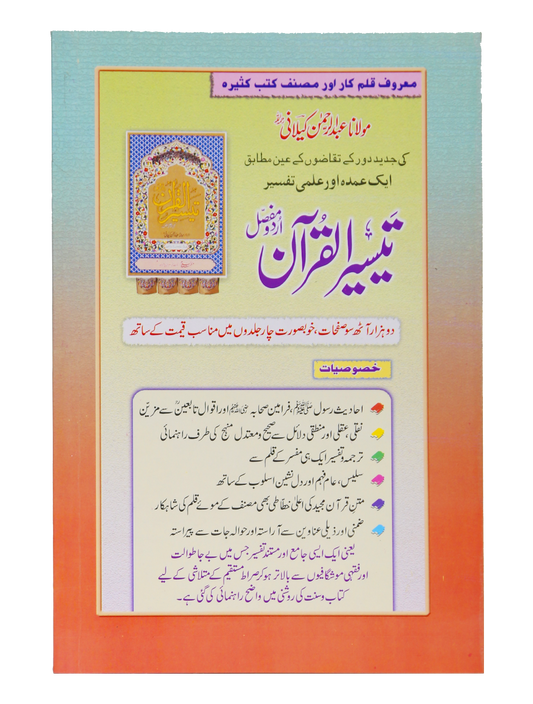 معروف قلم کار اور مصنف کتب کثیرہ
مولانا عبدالرحمٰن کیلانیؒ
کی جدید دور کے تقاضوں کے عین مطابق
ایک عمدہ اور علمی تفسیر
تیسیر القرآن اردو مفصل
دو ہزار آٹھ سو صفحات، خوبصورت چار جلدوں میں مناسب قیمت کے ساتھ
خصوصیات
احادیث رسول ﷺ، فرامین صحابہ رضی اللہ عنہم اور اقوال تابعینؒ سے مزین
نقلی، عقلی اور منطقی دلائل سے صحیح و معتدل منہج کی طرف راہنمائی
ترجمہ و تفسیر ایک ہی مفسر کے قلم سے
سلیس، عام فہم اور دل نشین اسلوب کے ساتھ
متن قرآن مجید کی اعلیٰ خطاطی بھی مصنف کے موئے قلم کی شاہکار
ضمنی اور ذیلی عناوین سے آراستہ اور حوالہ جات سے پیراستہ
یعنی ایک ایسی جامع اور مستند تفسیر جس میں بے جا طوالت
اور فقہی موشگافیوں سے بالاتر ہو کر صراط مستقیم کے متلاشی کے لیے
کتاب و سنت کی روشنی میں واضح راہنمائی کی گئی ہے۔
تیسیر القرآن